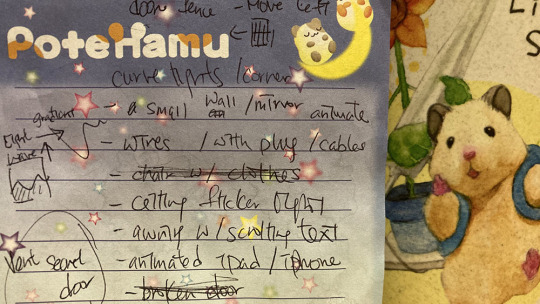 door fence - Move left
PoteHamu
curve lights / corner
- a small wall / mirror animate
gradient
light
- wires / with plug / cables
- chair w/ clothes
- ceiling flicker light
- awning w/ scrolling text
Vent secret
door
- animated ipad / iphone
- broken door
Li
S